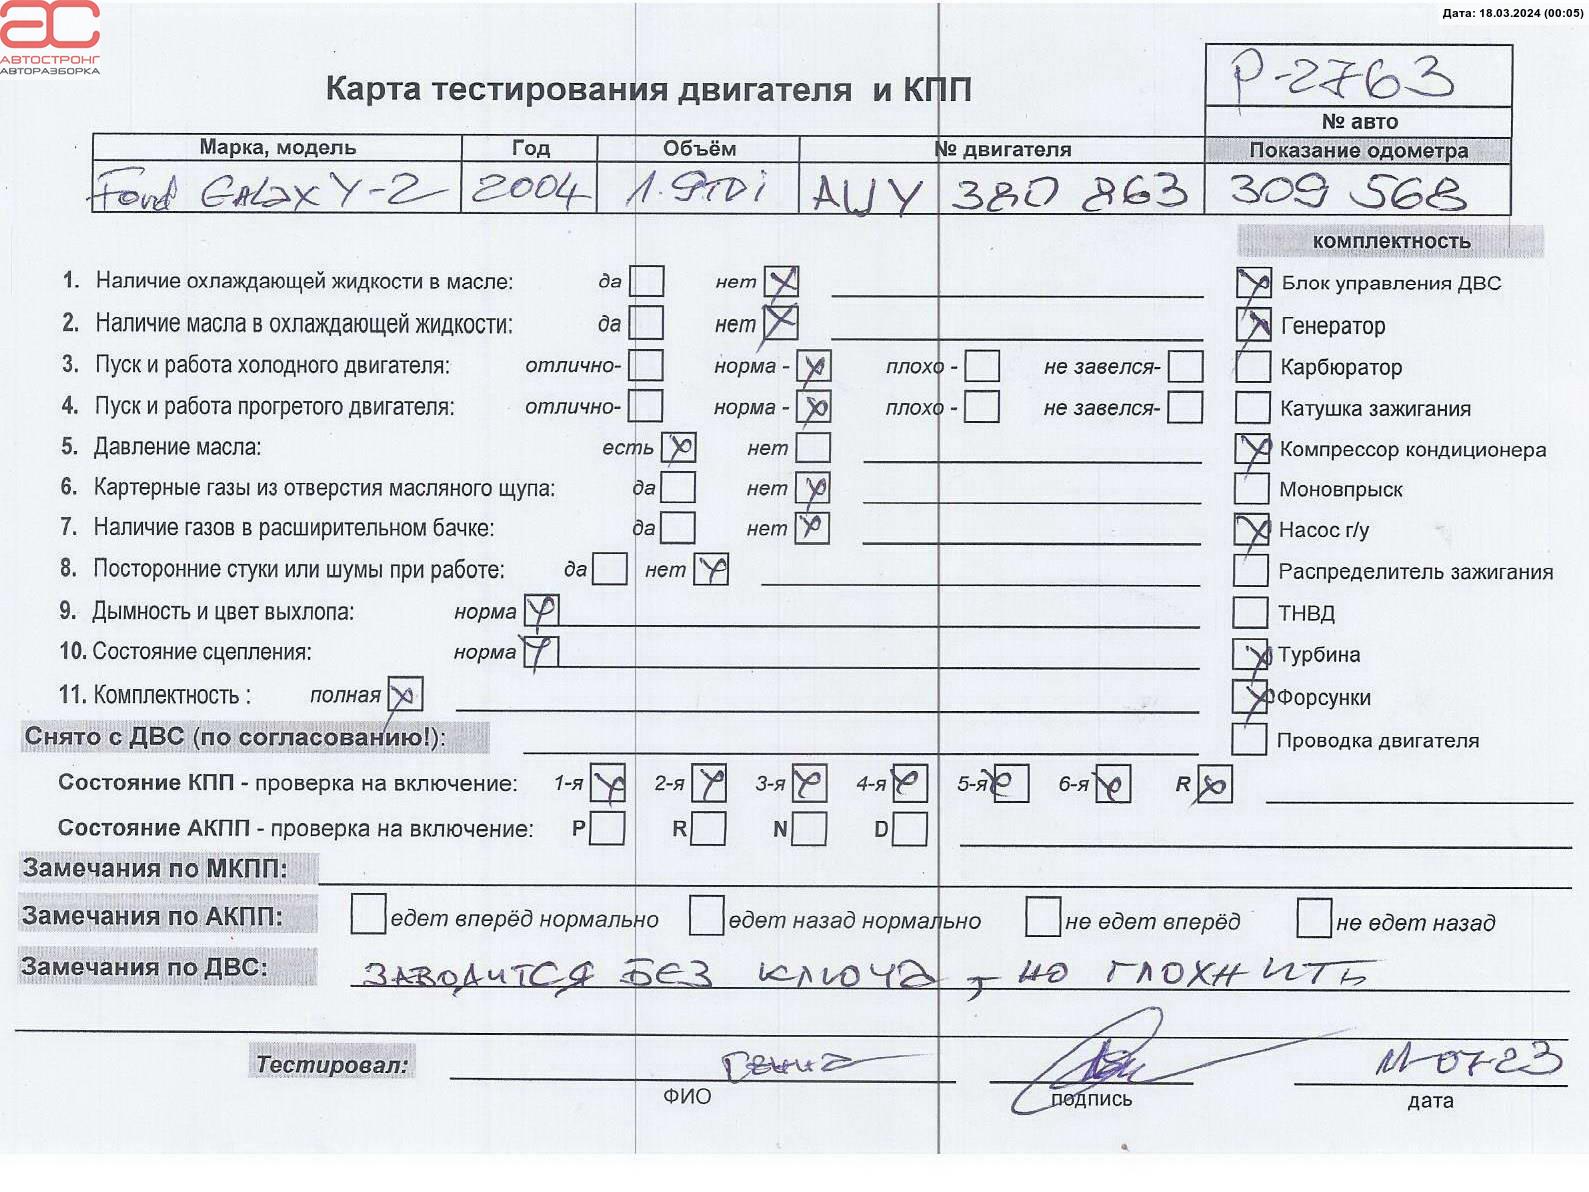 Дата: 18.03.2024 (00:05)
АС
АВТОСТРОНГ
АВТОРАЗБОРКА
Карта тестирования двигателя и КПП
P-2763
№ авто
Марка, модель Год Объём № двигателя Показание одометра
Ford GALAXY-2 2004 1.9TDi AUY 380 863 309 568
комплектность
1. Наличие охлаждающей жидкости в масле: да нет Блок управления ДВС
2. Наличие масла в охлаждающей жидкости: да нет Генератор
3. Пуск и работа холодного двигателя: отлично- норма - плохо - не завелся- Карбюратор
4. Пуск и работа прогретого двигателя: отлично- норма - плохо - не завелся- Катушка зажигания
5. Давление масла: есть нет Компрессор кондиционера
6. Картерные газы из отверстия масляного щупа: да нет Моновпрыск
7. Наличие газов в расширительном бачке: да нет Насос г/у
8. Посторонние стуки или шумы при работе: да нет Распределитель зажигания
9. Дымность и цвет выхлопа: норма ТНВД
10. Состояние сцепления: норма Турбина
11. Комплектность : полная Форсунки
Снято с ДВС (по согласованию!): Проводка двигателя
Состояние КПП - проверка на включение: 1-я 2-я 3-я 4-я 5-я 6-я R
Состояние АКПП - проверка на включение: P R N D
Замечания по МКПП:
Замечания по АКПП: едет вперёд нормально едет назад нормально не едет вперёд не едет назад
Замечания по ДВС: ЗАВОДИТСЯ БЕЗ КЛЮЧА, НО ГЛОХНИТЬ
Тестировал: Гена 11-07-23
ФИО подпись дата